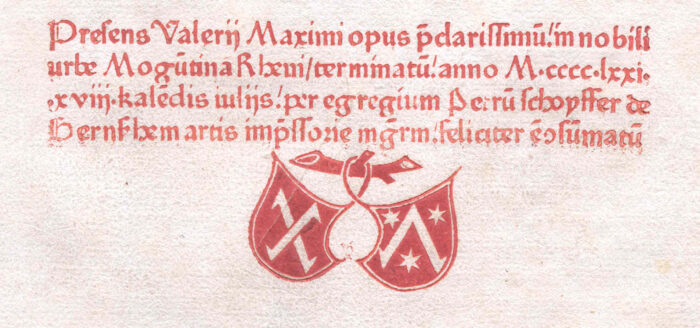 Presens Valerij Maximi opus p̄clarissimū! in nobili
urbe Mogūtina Rheni/terminatū! anno M·cccc·lxxi·
·xviii·kalēdis iulijs! per egregium Petrū schoyffer de
Gernsshem artis imp̄ssorie mgr̄m! feliciter ē ↄsūmatū